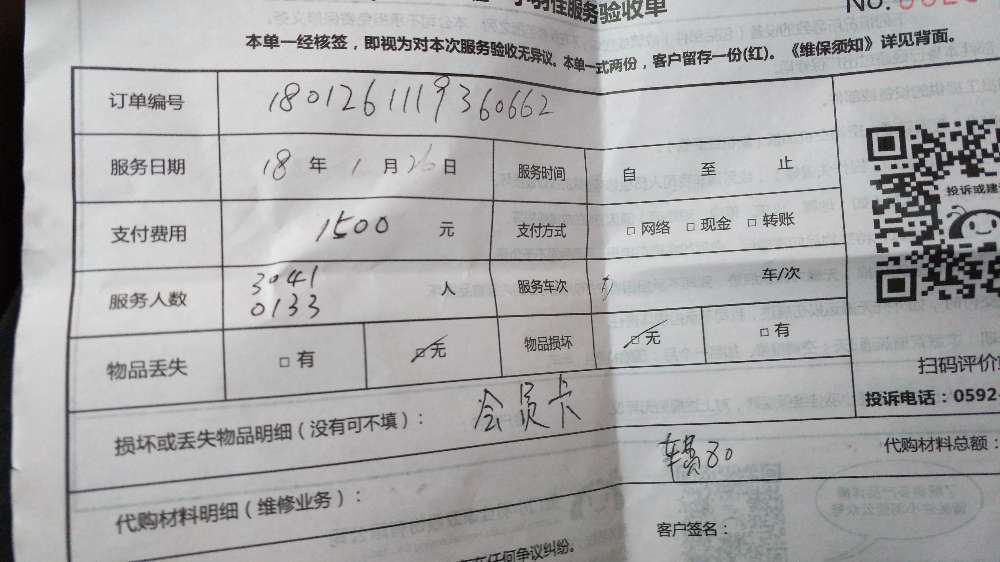 服务验收单
NO.
本单一经核签，即视为对本次服务验收无异议。本单一式两份，客户留存一份(红)。《维保须知》详见背面。
订单编号 1801261119360662
服务日期 18 年 1 月 26 日 服务时间 自 至 止
支付费用 1500 元 支付方式 □ 网络 □ 现金 □ 转账
服务人数 3041 0133 人 服务车次 车/次
物品丢失 □ 有 □ 无 物品损坏 □ 无 □ 有
投诉或建
扫码评价
投诉电话：0592-
损坏或丢失物品明细（没有可不填）： 会员卡
车费80 代购材料总额：
代购材料明细（维修业务）：
客户签名：
任何争议纠纷。